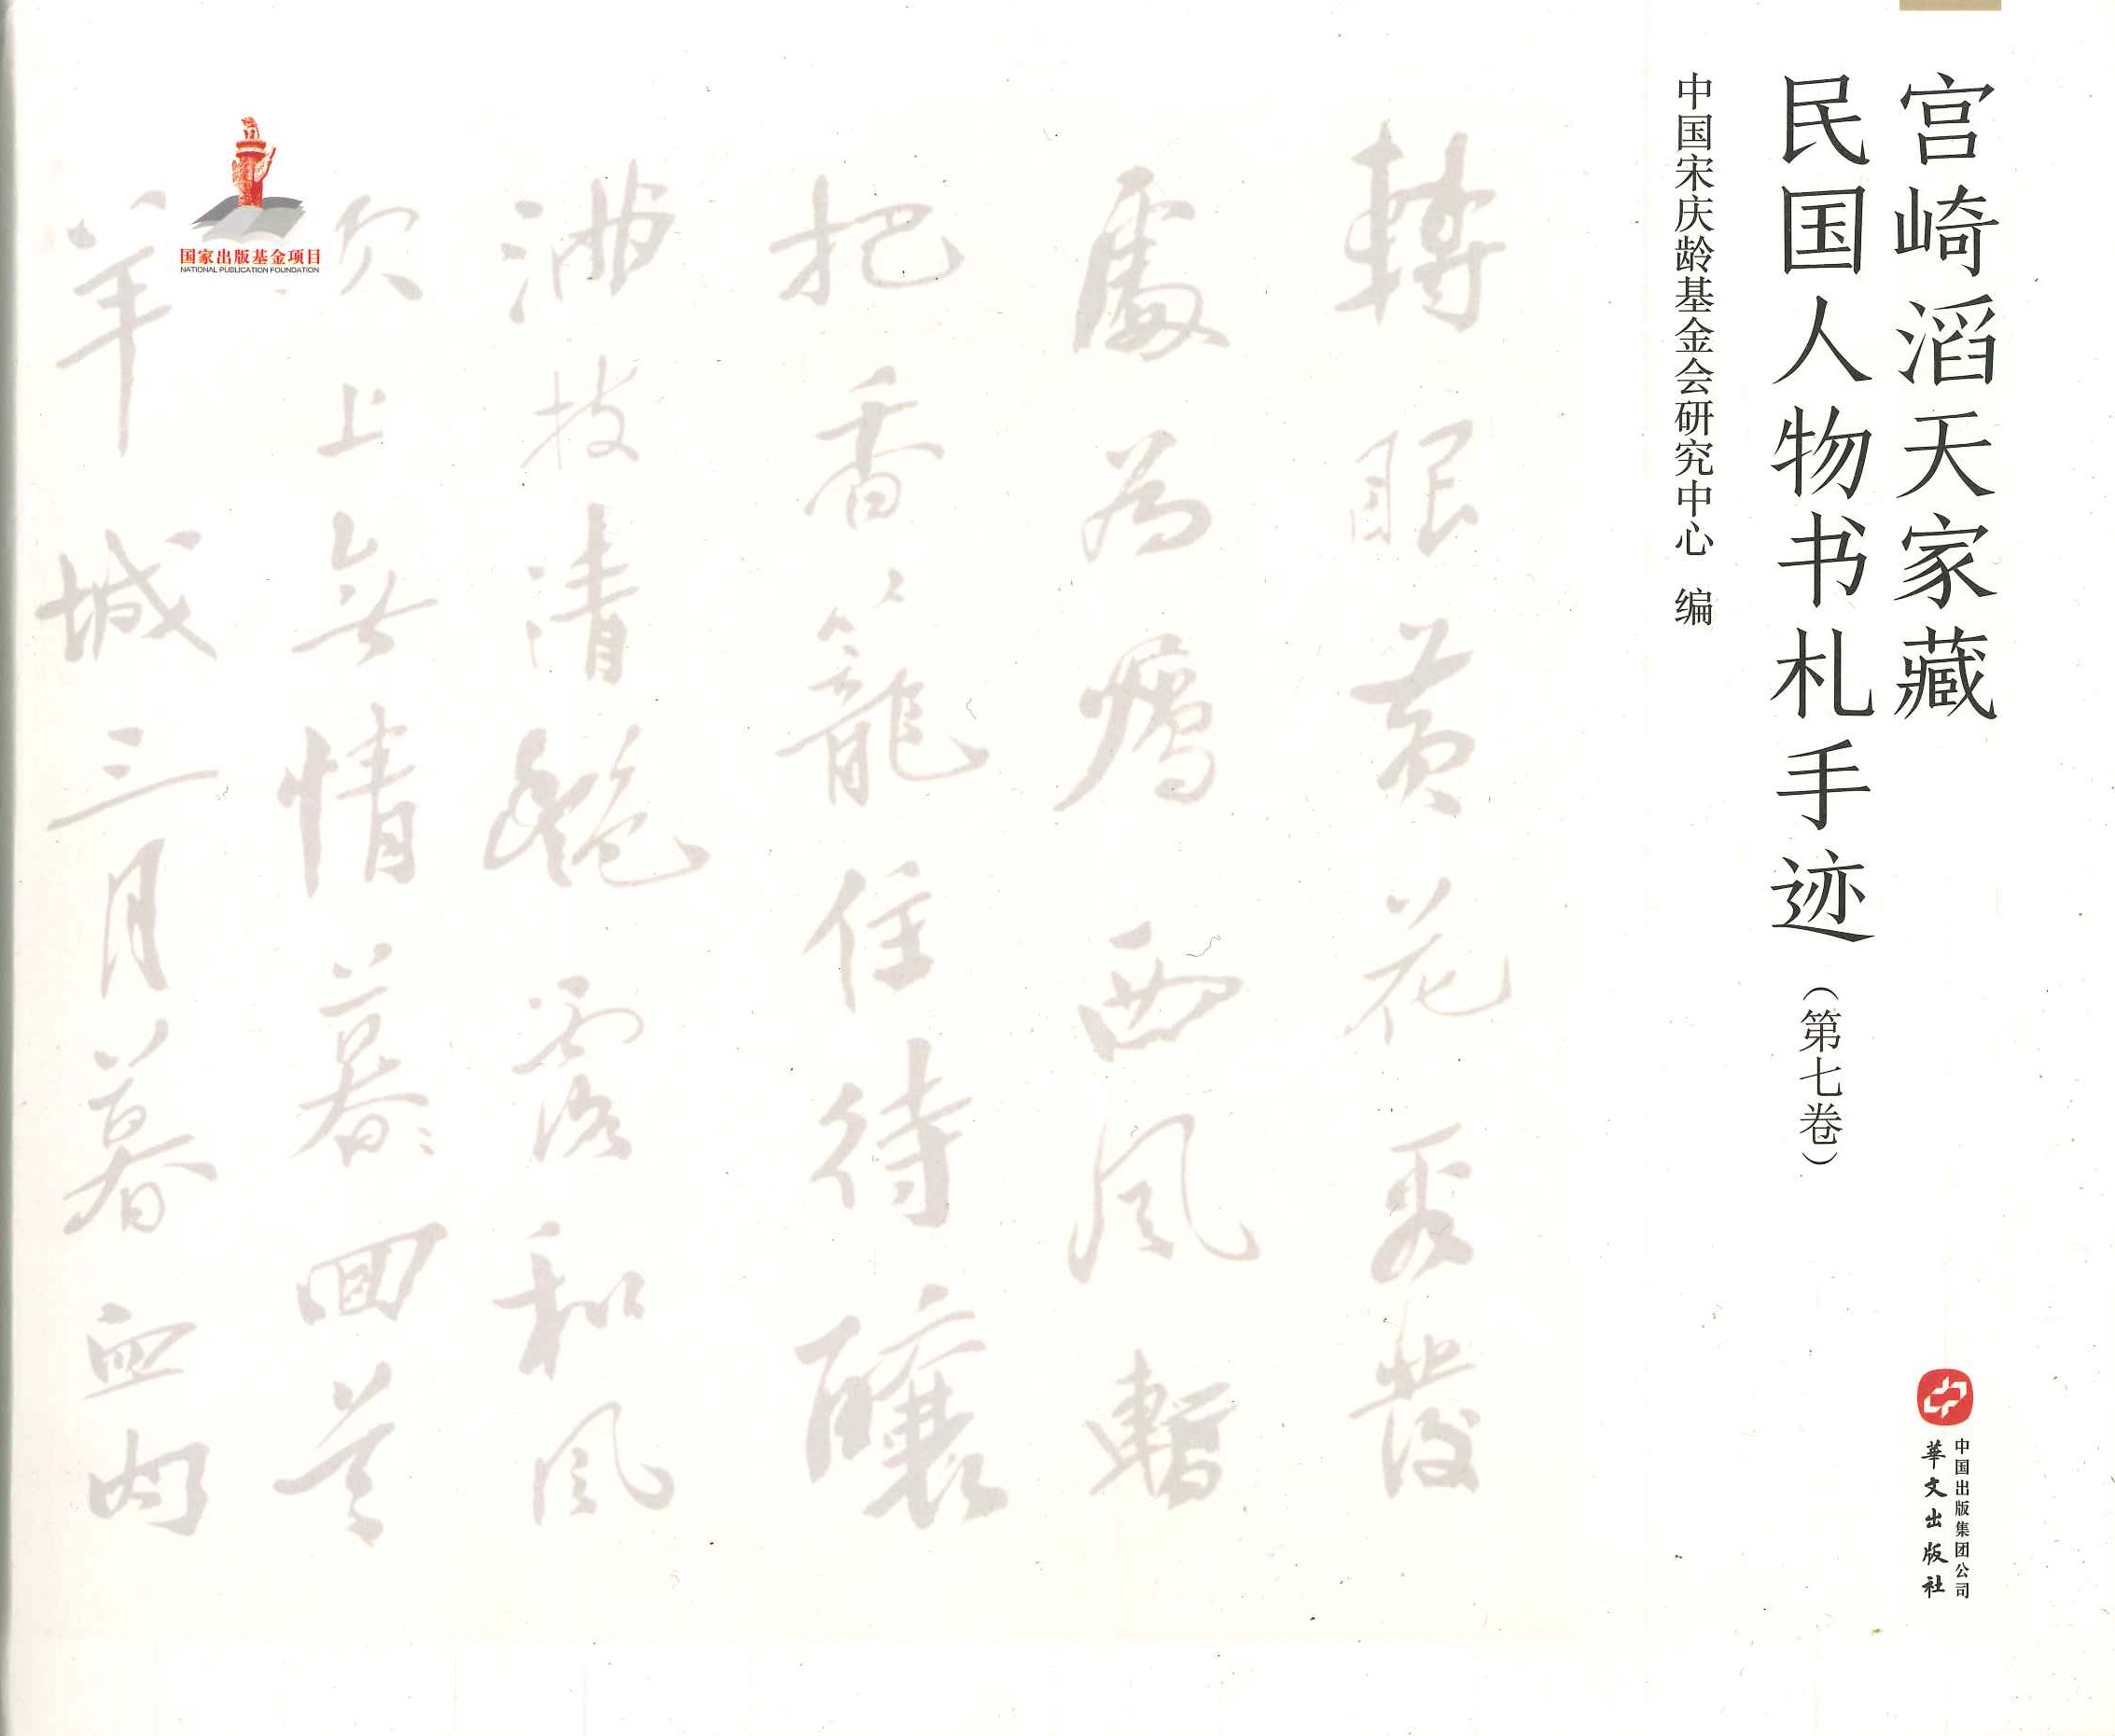 宫崎滔天家藏
民国人物书札手迹（第七卷）
中国宋庆龄基金会研究中心 编
中国出版集团公司
華文出版社
轉眼黃花看發
處為囑西風暫
把香籠住待釀
滿枝清艷露和風
吹上無情墓回首
羊城三月暮血肉
国家出版基金项目
NATIONAL PUBLICATION FOUNDATION